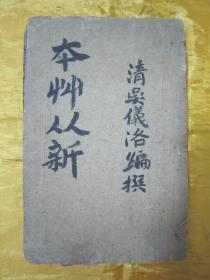 清吴儀洛编撰
本艸从新